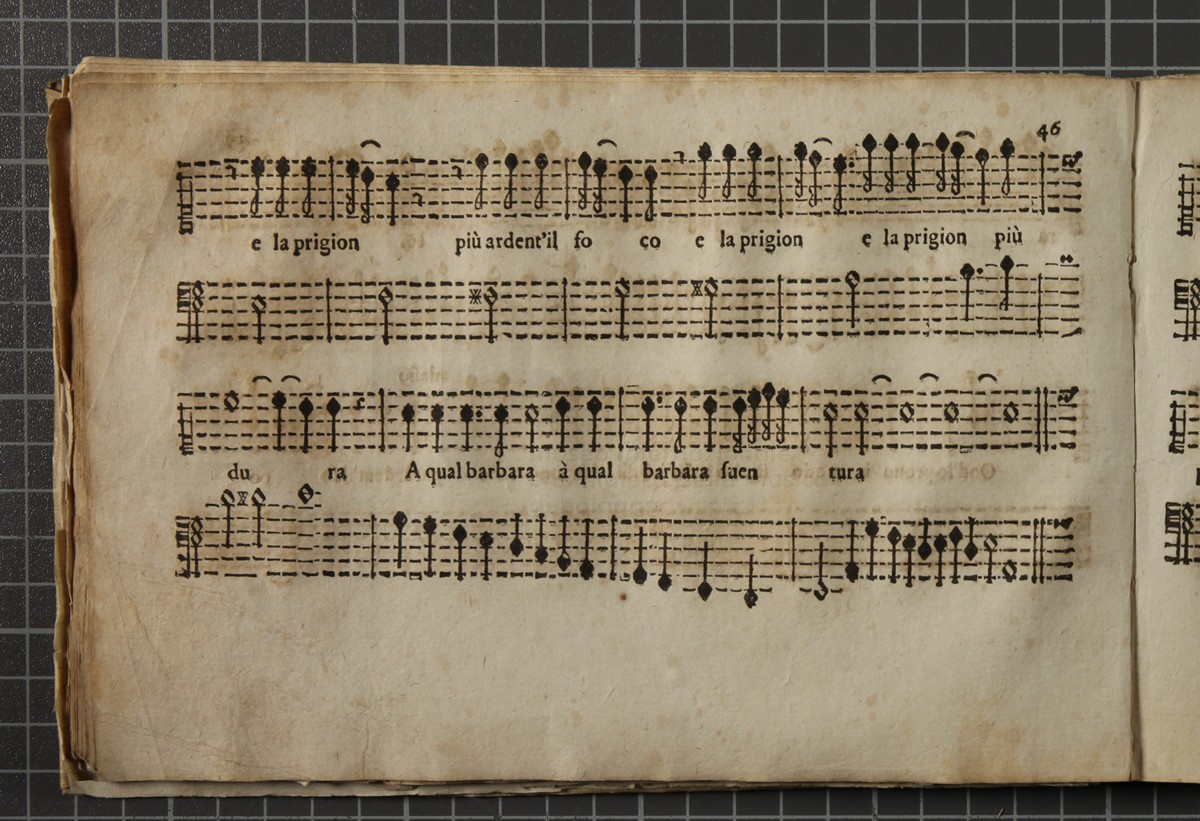 46
e la prigion più ardent'il fo co e la prigion e la prigion più
du ra A qual barbara à qual barbara suen tura